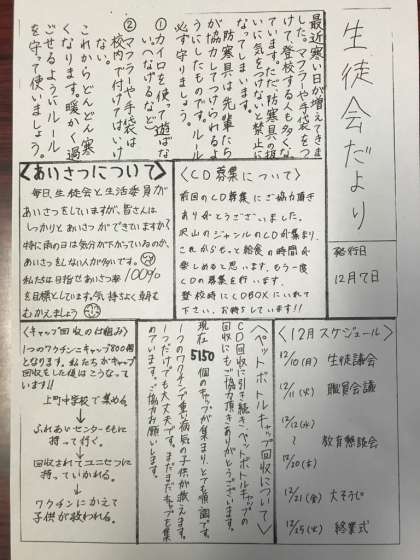 生徒会だより
発行日
12月7日
最近寒い日が増えてきま
した。マフラーや手袋をつ
けて、登校する人も多くな
っています。ただ、防寒具の扱
いに気をつけないと禁止に
なってしまいます。
防寒具は先輩たち
が協力してつけられるよ
うにしたものです。ルール
必ず守りましょう。
①カイロを使って遊ばな
い(なげるなど)
②マフラーや手袋は
校内で付けてはいけ
ない。
これからどんどん寒
くなります。暖かく過
ごせるようにルール
を守って使いましょう。
〈あいさつについて〉
毎日、生徒会と生活委員が
あいさつをしていますが、皆さんは
しっかりとあいさつができていますか?
特に雨の日は気分が下がっているのか、
あいさつをしない人が多いです。
私たちは目指せあいさつ率100%
を目標としています。気持ちよく朝を
むかえましょう
〈CD募集について〉
前回のCD募集にご協力頂き
ありがとうございました。
沢山のジャンルのCDが集まり、
これからもっと給食の時間が
楽しめると思います。もう一度
CDの募集を行います。
登校時にCDBOXにいれて
下さい。お待ちしています!!
〈12月スケジュール〉
12/10(月) 生徒議会
12/11(火) 職員会議
12/12(水)
〜 教育懇談会
12/20(木)
12/21(金) 大そうじ
12/25(火) 終業式
〈ペットボトルキャップ回収について〉
CD回収に引き続き、ペットボトルキャップの
回収にもご協力頂きありがとうございます。
現在5150個のキャップが集まり、とても順調です。
1つのワクチンで重い病気の子供が救えます。
1つだけでも大丈夫です。まだまだキャップを集
めています。ご協力お願いします。
〈キャップ回収の仕組み〉
1つのワクチンにキャップ800個
となります。私たちがキャップ
回収をした後はこうなって
います!!
上町中学校で集める。
↓
ふれあいセンターももに
持って行く。
↓
回収されてユニセフに
持っていかれる。
↓
ワクチンにかえて
子供が救われる。